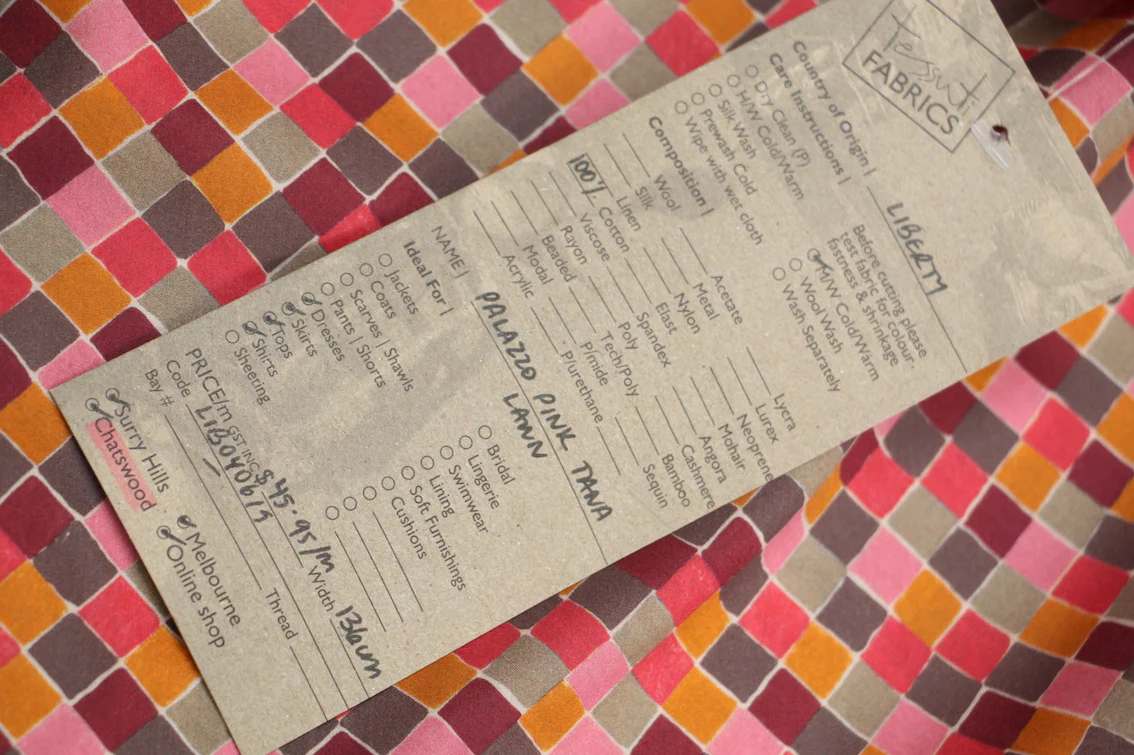 Tessuti
FABRICS
Country of Origin | LIBERTY
Care Instructions |
Dry Clean (P)
H/W Cold/Warm
Silk Wash
Prewash Cold
Wipe with wet cloth
Before cutting please
test fabric for colour
fastness & shrinkage
M/W Cold/Warm
Wool Wash
Wash Separately
Composition |
Wool
Silk
Linen
100% Cotton
Viscose
Rayon
Beaded
Modal
Acrylic
Acetate
Metal
Nylon
Elast
Spandex
Poly
Tech/Poly
P/mide
P/urethane
Lycra
Lurex
Neoprene
Mohair
Angora
Cashmere
Bamboo
Sequin
NAME | PALAZZO PINK TANA
LAWN
Ideal For |
Jackets
Coats
Scarves | Shawls
Pants | Shorts
Dresses
Skirts
Tops
Shirts
Sheeting
Bridal
Lingerie
Swimwear
Lining
Soft Furnishings
Cushions
PRICE/m GST INC $45.95/m Width 136cm
Code LIB040619
Bay # Thread
Surry Hills
Chatswood
Melbourne
Online shop